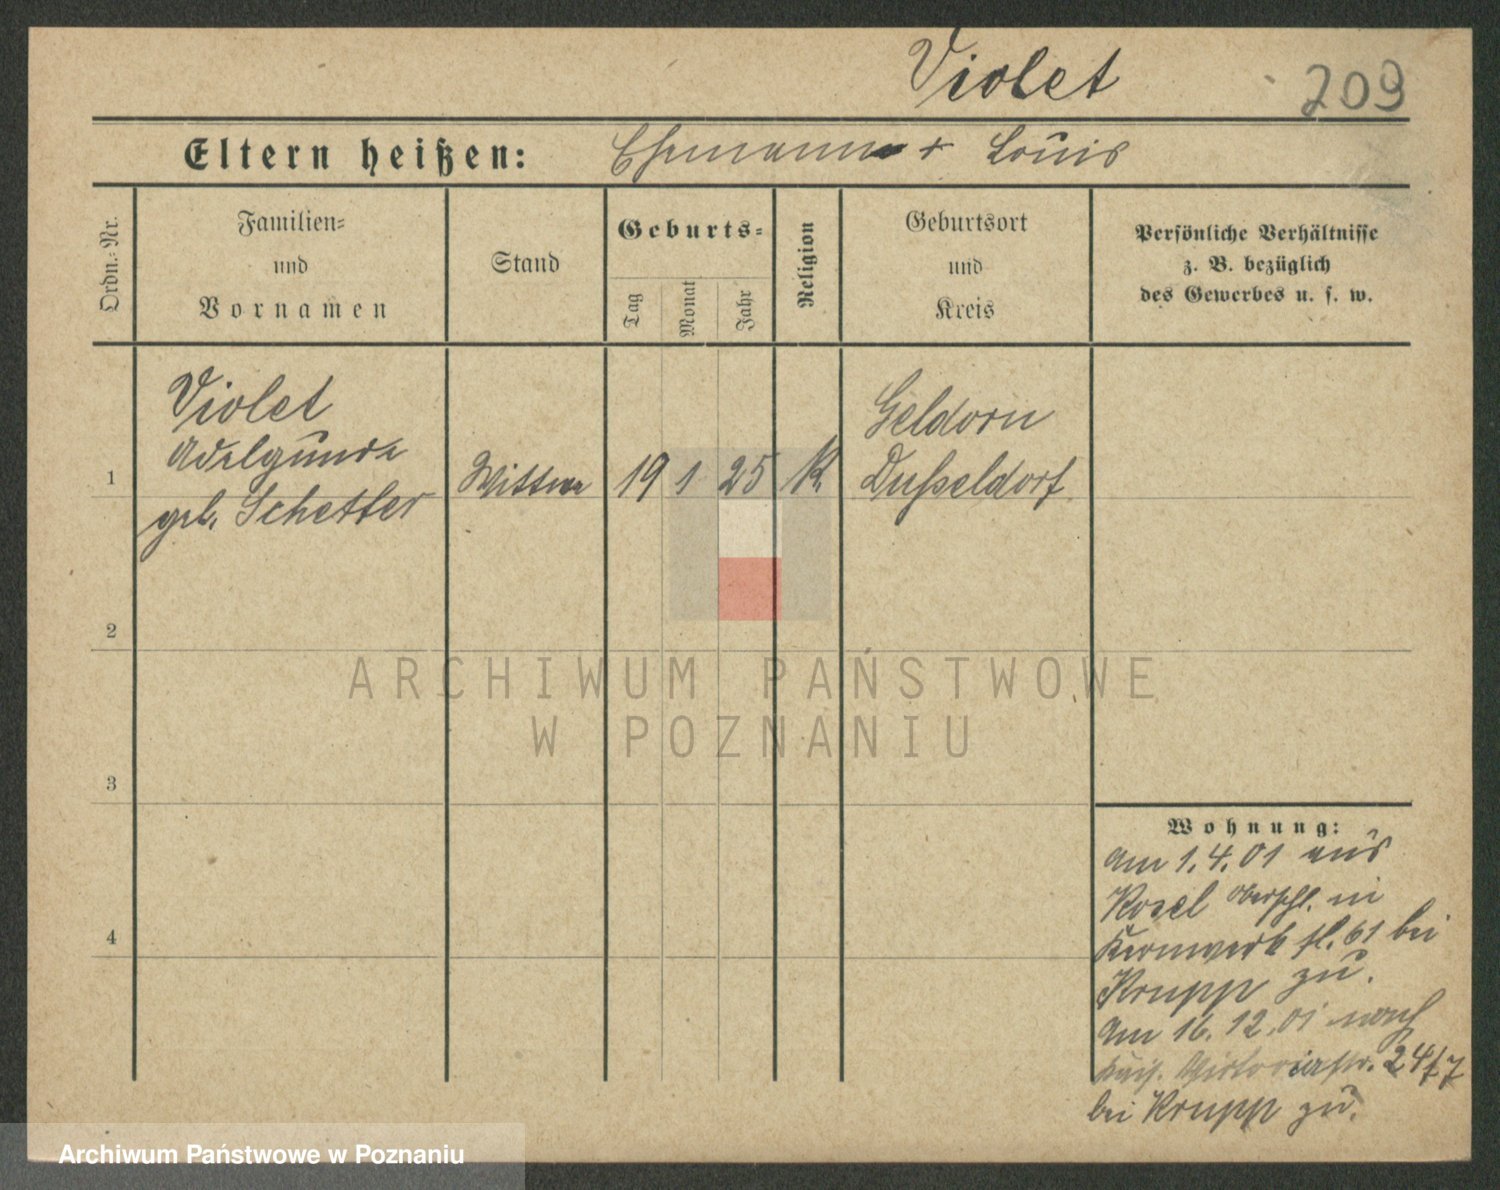 Violet
209
Eltern heißen: Ehemann + Louis
Ordn.-Nr.
Familien-
und
Vornamen
Stand
Geburts-
Tag
Monat
Jahr
Religion
Geburtsort
und
Kreis
Persönliche Verhältnisse
z. B. bezüglich
des Gewerbes u. s. w.
Violet
Adelgunde
geb. Schetter
1
Wittwe
19 1 25
K
Geldorn
Dußseldorf
2
3
4
Wohnung:
Am 1.4.01 aus
Kosel Oberschl. in
Kernwerk fl. 61 bei
Krupp zu.
Am 16.12.01 nach
Kais. Viktoriastr. 24/7
bei Krupp zu.
ARCHIWUM PAŃSTWOWE
W POZNANIU
Archiwum Państwowe w Poznaniu